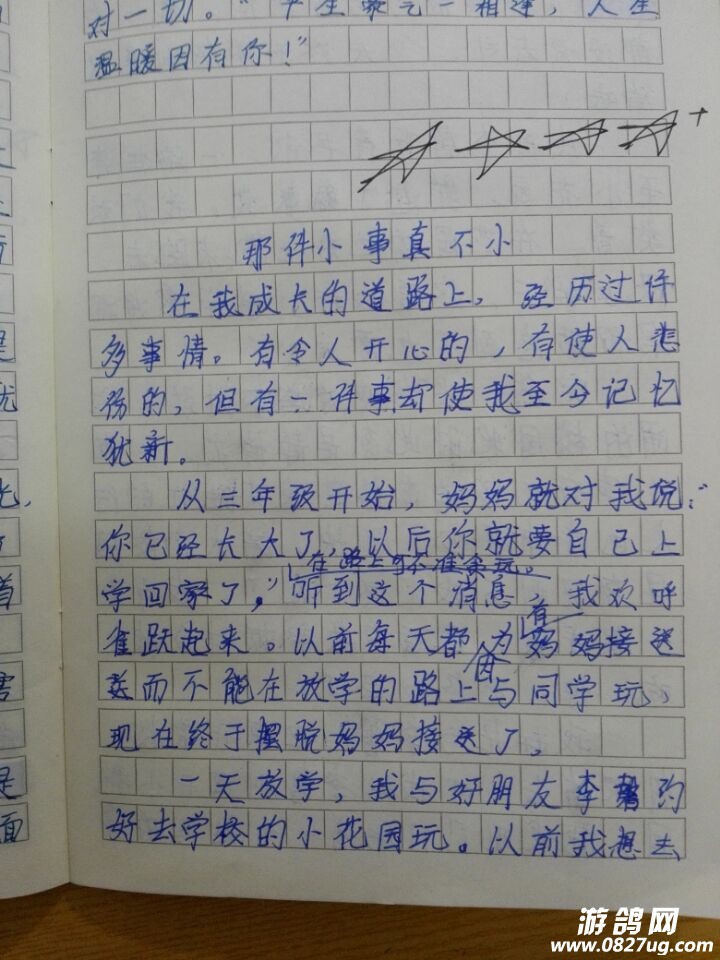 对一切。"平生
一相逢，人生
温暖因有你！"
+
那件小事真不小
在我成长的道路上，经历过许
多事情。有令人开心的，有使人悲
伤的，但有一件事却使我至今记忆
犹新。
从三年级开始，妈妈就对我说："
你已经长大了，以后你就要自己上
在路上可不准贪玩。
学回家了，"听到这个消息，我欢呼
雀跃起来。以前每天都 有妈妈接送
而不能在放学的路上与同学玩，
现在终于摆脱妈妈接送了。
一天放学，我与好朋友李 约
好去学校的小花园玩。以前我想去
游鸽网
www.0827ug.com